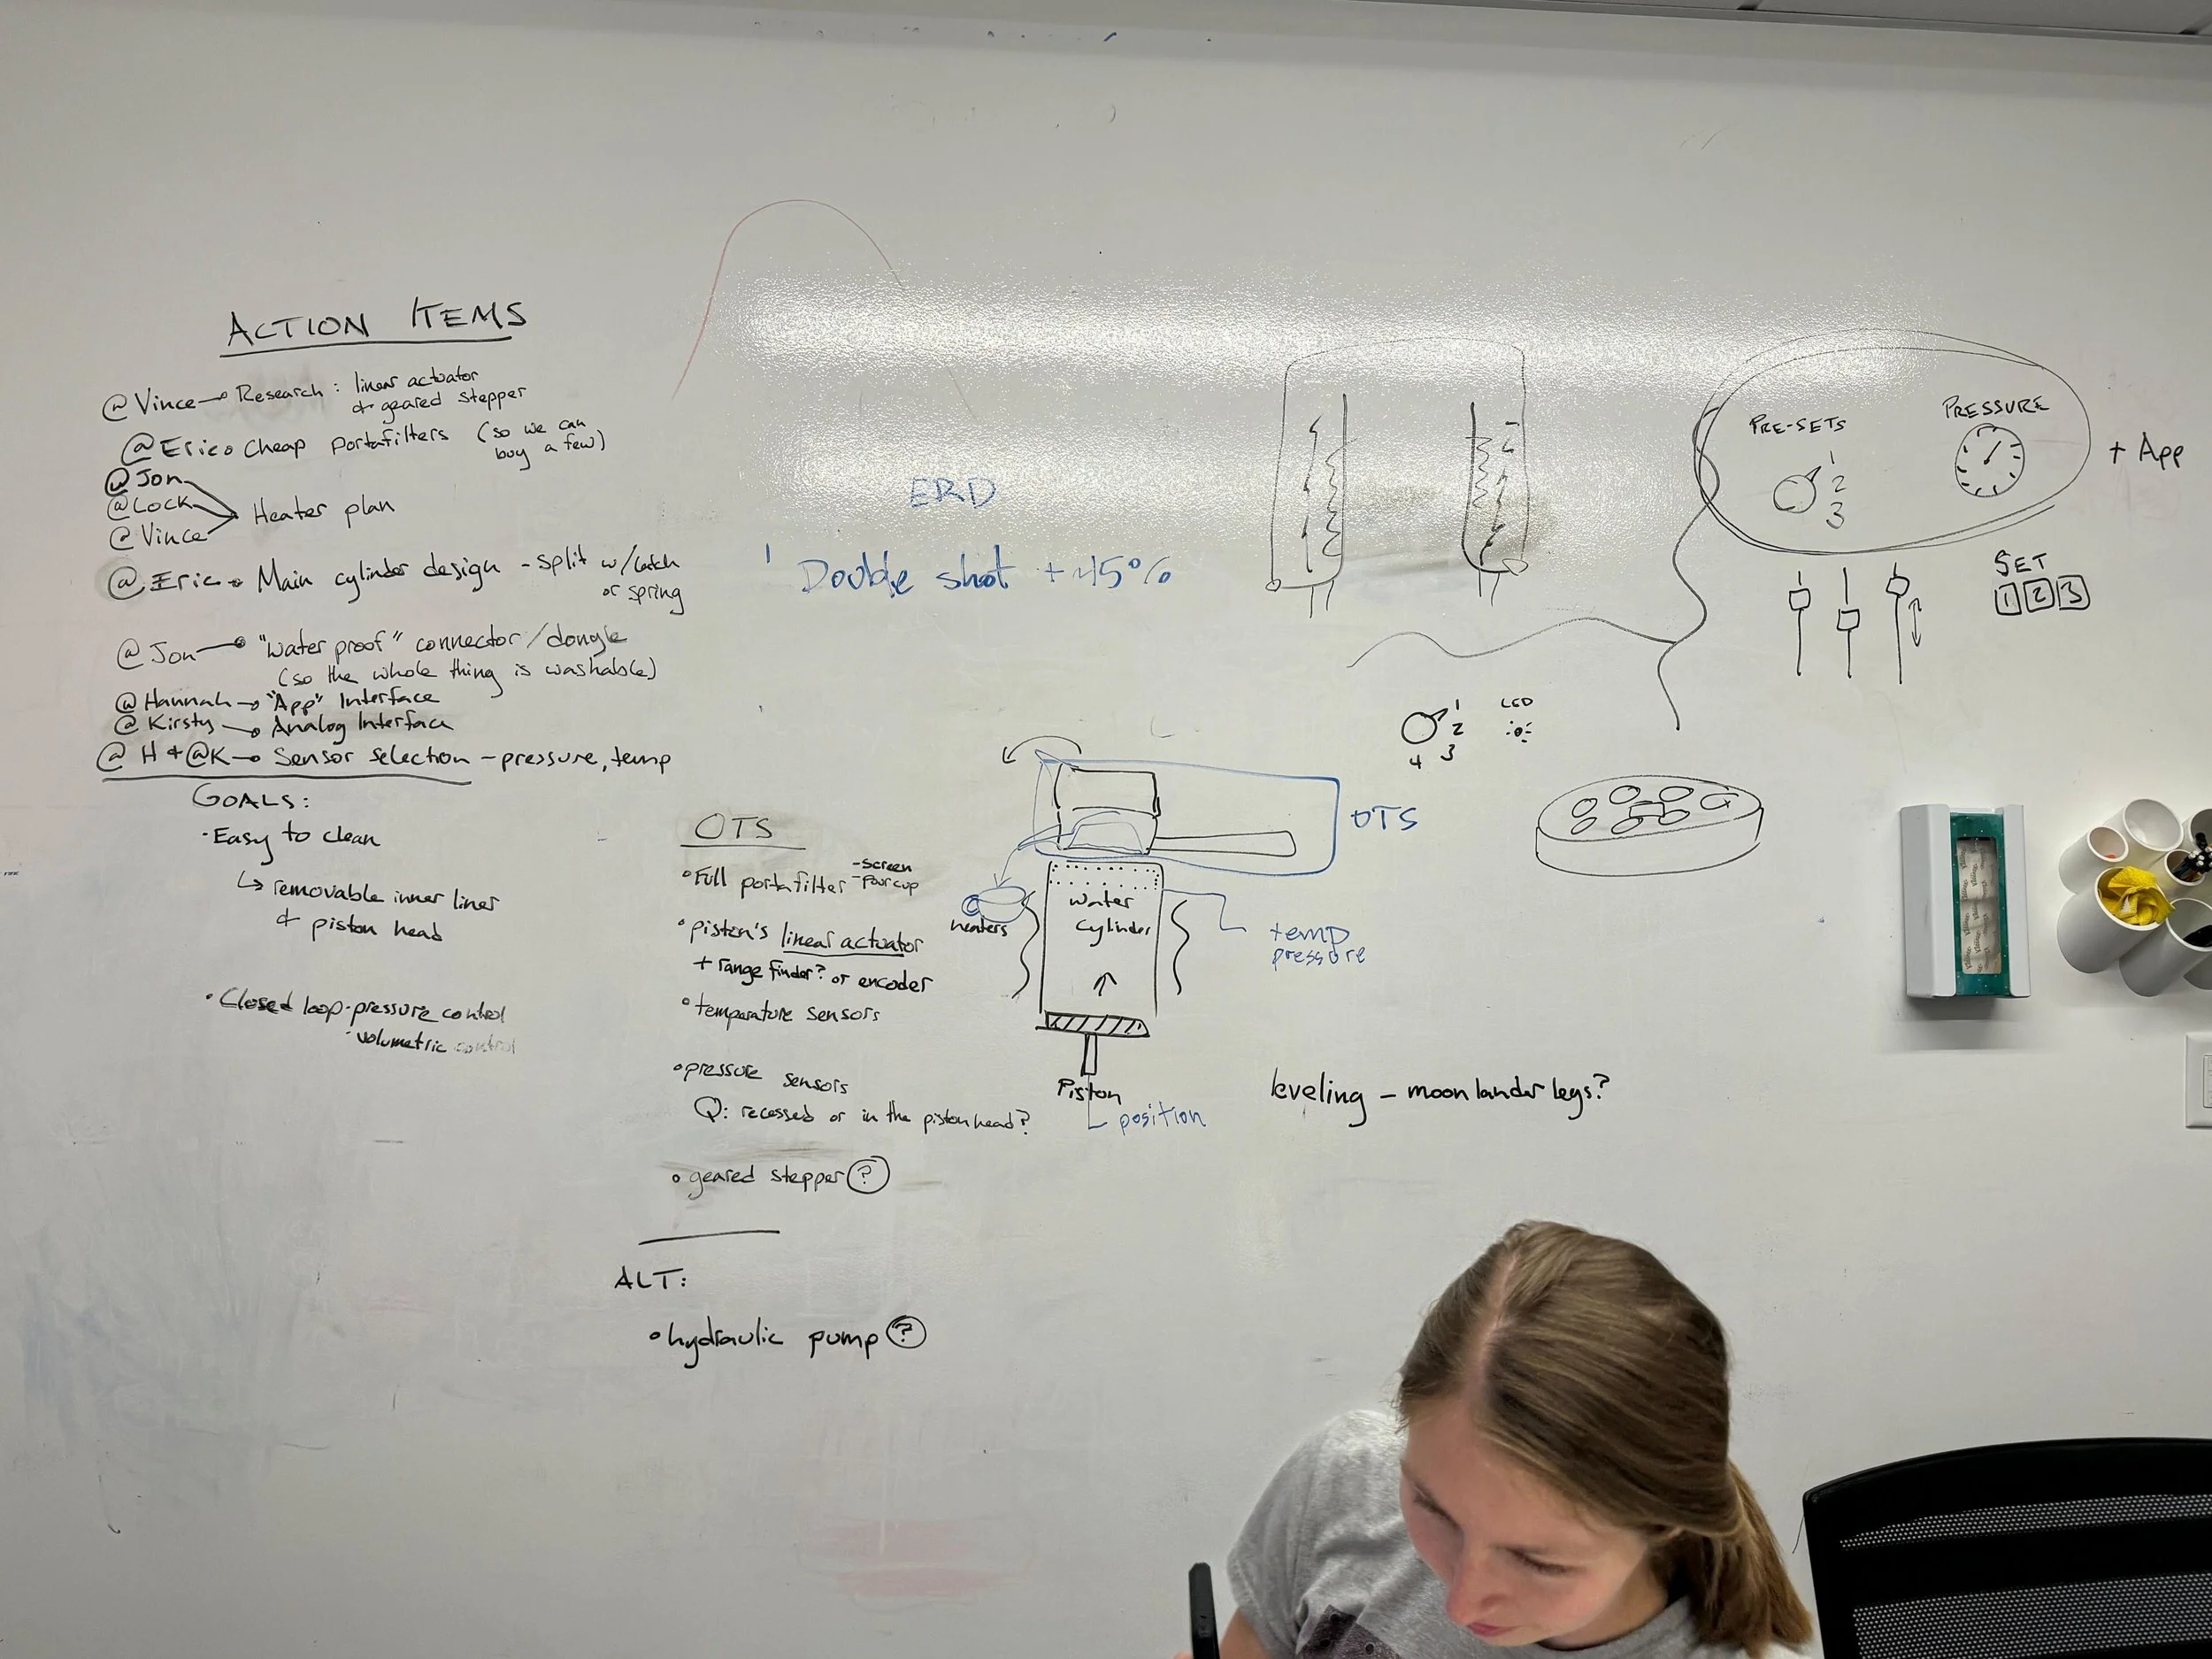 ACTION ITEMS
@Vince → Research: linear actuator
& geared stepper
@Eric → Cheap portafilters (so we can
buy a few)
@Jon
@Lock
@Vince
Heater plan
@Eric → Main cylinder design - split w/latch
or spring
@Jon → "Waterproof" connector/dongle
(so the whole thing is washable)
@Hannah → "App" Interface
@Kirsty → Analog Interface
@H + @K → Sensor selection - pressure, temp
GOALS:
· Easy to clean
↳ removable inner liner
& piston head
· Closed loop pressure control
· volumetric control
ERD
Double shot + 45%
OTS
• Full portafilter
- screen
- pour cup
• piston's linear actuator
+ range finder? or encoder
• temperature sensors
• pressure sensors
Q: recessed or in the piston head?
• geared stepper ?
ALT:
• hydraulic pump ?
OTS
heaters
Water
Cylinder
temp
pressure
Piston
position
leveling - moon lander legs?
PRE-SETS
1
2
3
PRESSURE
+ App
SET
1 2 3
1
2
3
4
LED